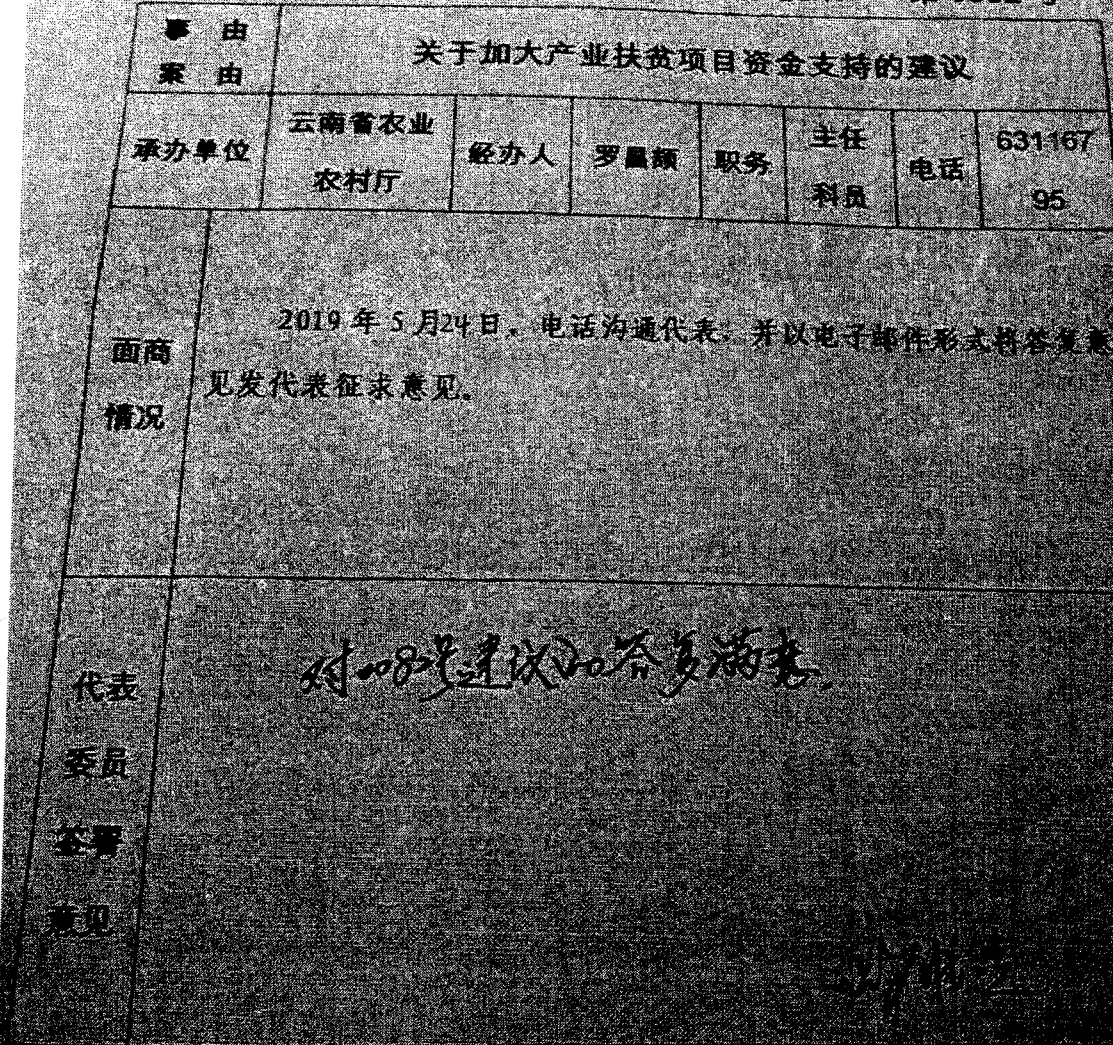 事 由
案 由
关于加大产业扶贫项目资金支持的建议
承办单位
云南省农业
农村厅
经办人
职务
主任
科员
电话
631167
95
面商
情况
2019 年 5 月24日，电话沟通代表，并以电子邮件形式将答复意
见发代表征求意见。
代表
委员
签署
意见
号建议的答复满意。